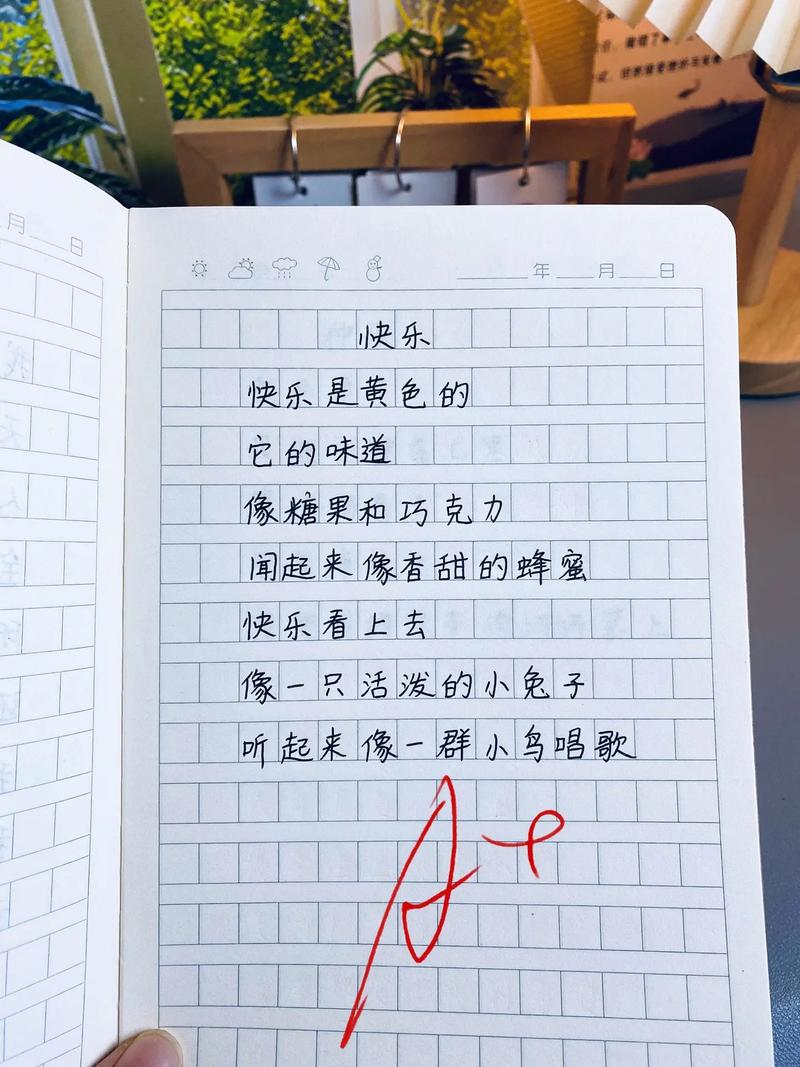 年 月 日
月 日
快乐
快乐是黄色的
它的味道
像糖果和巧克力
闻起来像香甜的蜂蜜
快乐看上去
像一只活泼的小兔子
听起来像一群小鸟唱歌
A+